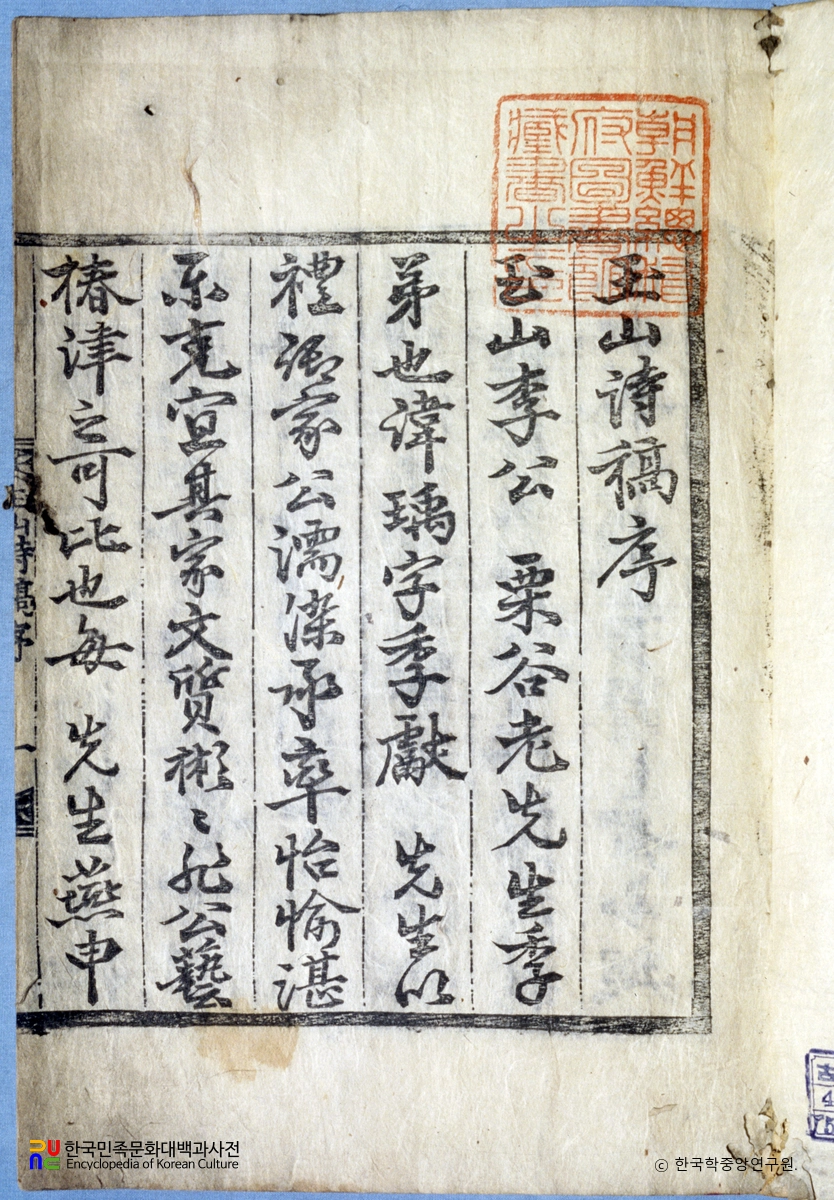 朝鮮總督
府圖書館
藏書之印
玉山詩稿序
玉山李公 栗谷老先生季
弟也諱瑀字季獻 先生以
禮御家公濡染承率怡愉湛
乐克宜其家文質彬〻非公藝
椿津之可比也每 先生燕申
玉山詩稿序 一
한국민족문화대백과사전
Encyclopedia of Korean Culture
ⓒ 한국학중앙연구원.